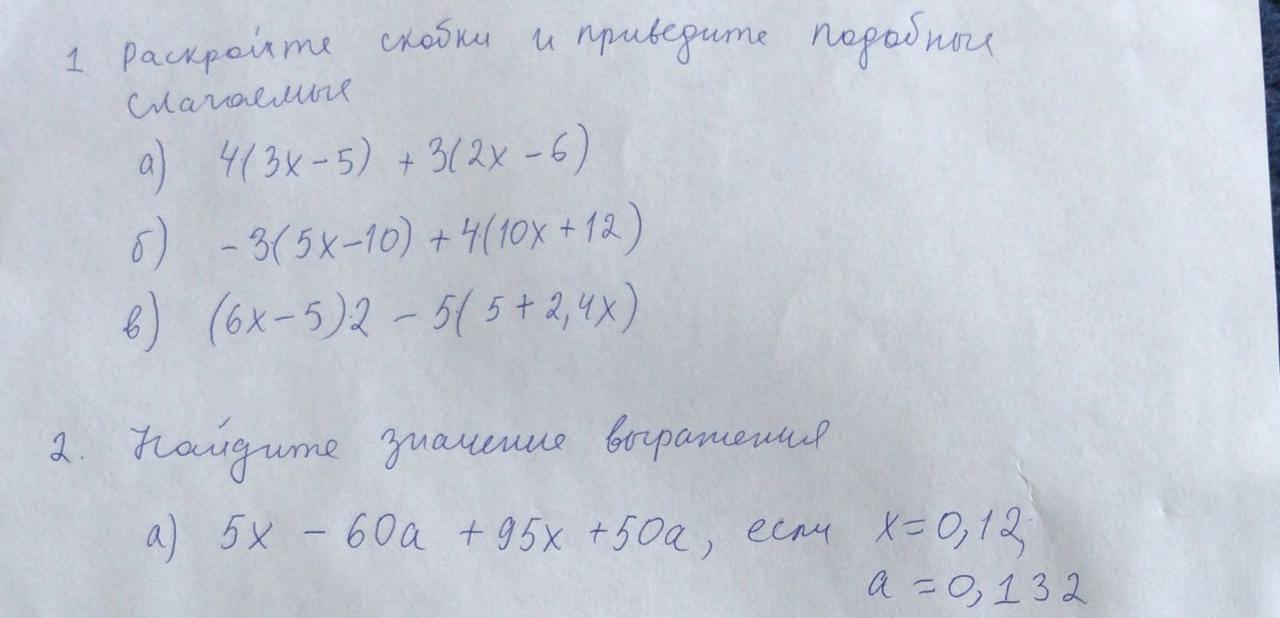 1. Раскройте скобки и приведите подобные
слагаемые
а) 4(3x-5) + 3(2x-6)
б) -3(5x-10) + 4(10x+12)
в) (6x-5)·2 - 5(5+2,4x)
2. Найдите значение выражения
а) 5x - 60a + 95x + 50a, если x=0,12;
a=0,132